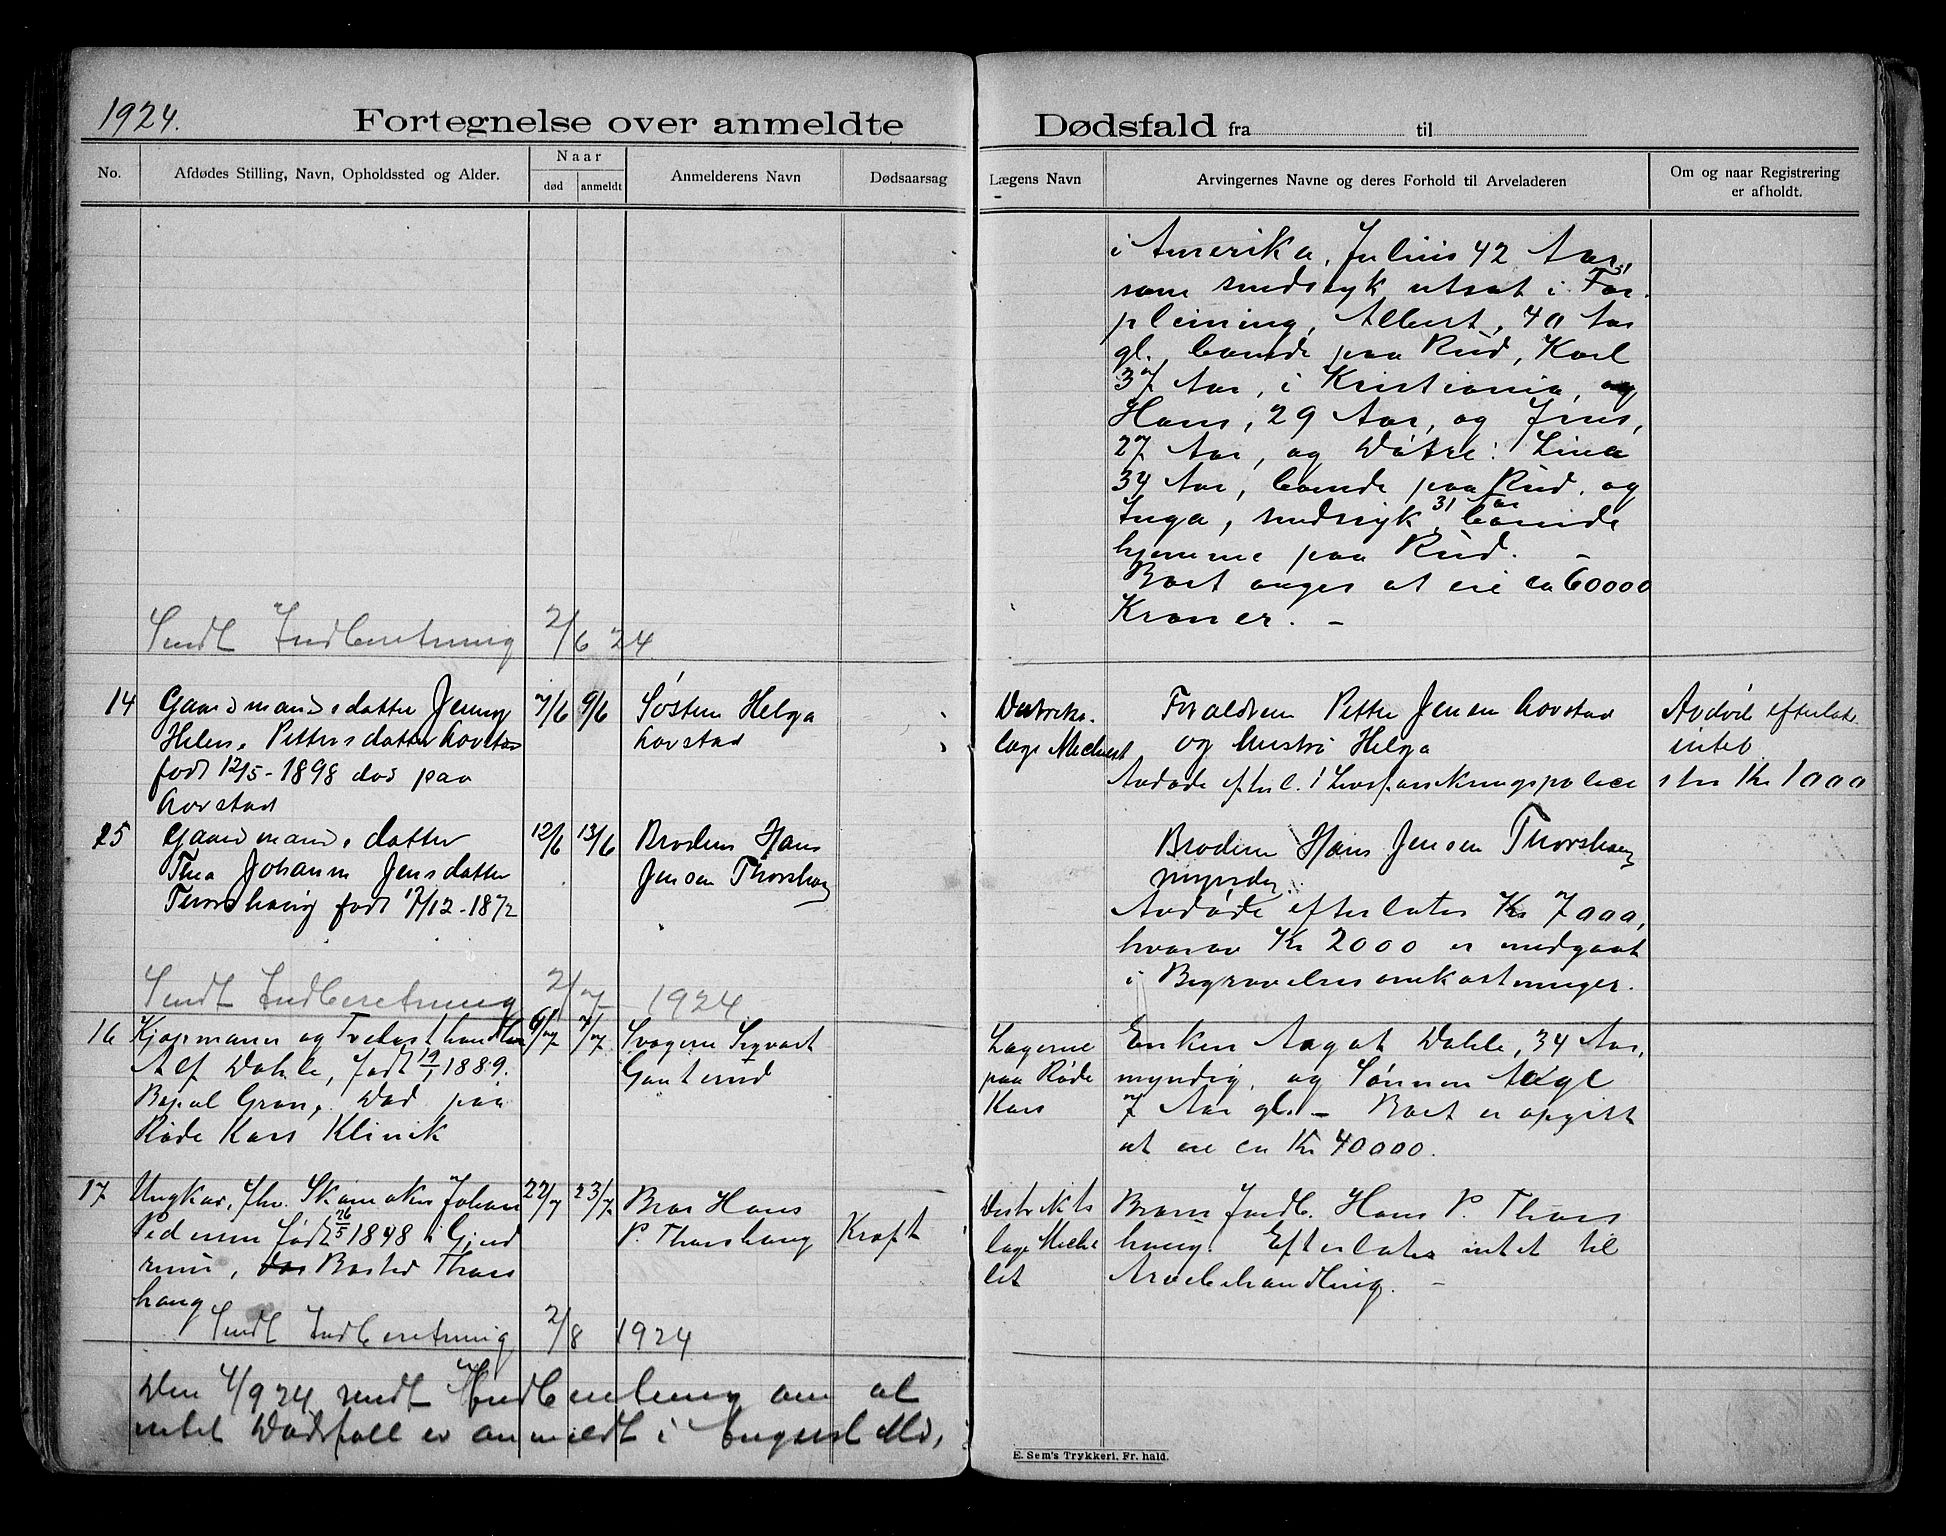 1924.
Fortegnelse over anmeldte Dødsfald fra til
No.
Afdødes Stilling, Navn, Opholdssted og Alder.
Naar
død
anmeldt
Anmelderens Navn
Dødsaarsag
Lægens Navn
Arvingernes Navne og deres Forhold til Arveladeren
Om og naar Registrering
er afholdt.
i Amerika, Julius 42 Aar,
som sindssyk utsat i For-
pleining, Albert, 40 Aar
gl., boende paa Rud, Karl
37 Aar, i Kristiania, og
Hans, 29 Aar, og Jens,
27 Aar, og Døtre: Lina
34 Aar, boende paa Rud, og
Inga, sindssyk, 31 Aar boende
hjemme paa Rud. –
Boet anges at eie ca 60000
Kroner. –
Sendt Indberetning 2/6 24
14
Gaardmandsdatter Jenny
Helene Pettersdatter Hovstad
født 12/5 - 1898 død paa
Hovstad
7/6
9/6
Søsteren Helga
Hovstad
Distrikts-
læge Michelet
Foraldren Petter Jensen Hovstad
og hustru Helga
Avdøde efterl. 1 Livsforsikringspolice
Avdøde efterlot
intet
stor Kr 1000
25
Gaardmandsdatter
Thea Johanne Jensdatter
Thorshaug født 17/12 - 1872
12/6
13/6
Broderen Hans
Jensen Thorshaug
Broderen Hans Jensen Thorshaug
myndig.
Avdøde efterlater Kr 7000,
hvorav Kr 2000 er medgaat
i Begravelsesomkostninger.
Sendt Indberetning 2/7 1924
16
Kjøpmann og Trelasthandler
Alf Dahle, født 19/1 1889.
Bopæl Gran. Død paa
Røde Kors Klinik
6/7
7/7
Svogeren Sigvart
Gauterud
Lægerne
paa Røde
Kors
Enken Aagot Dahle, 34 Aar,
myndig, og Sønnen
7 Aar gl. – Boet er opgitt
at eie ca Kr 40000.
17
Ungkar, fhv. Skomaker Johan
Pedersen født 26/5 1848 i Gjerd
rum, Bosted Thors
haug
22/7
23/7
Bror Hans
P. Thorshaug
Kræft
Distrikts
læge Miche
let
Broren Hans P. Thors
haug. Efterlater intet til
Arvebehandling. –
Sendt Indberetning 2/8 1924
Den 4/9 24 sendt Indberetning om at
intet Dødsfall er anmeldt i August Md,
E. Sem's Trykkeri, Fr. hald.